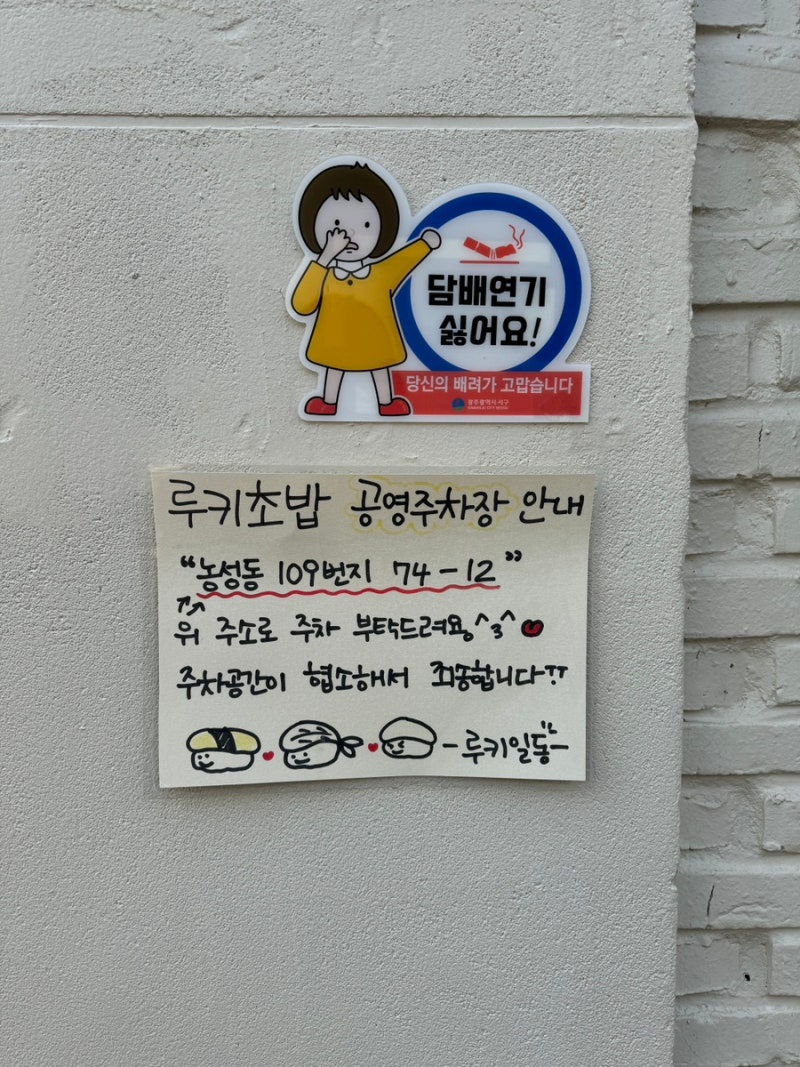 담배연기
싫어요!
당신의 배려가 고맙습니다
광주광역시 서구
GWANGJU CITY SEOGU
루키초밥 공영주차장 안내
"농성동 109번지 74-12"
위 주소로 주차 부탁드려요^3^
주차공간이 협소해서 죄송합니다ㅠㅠ
-루키일동-